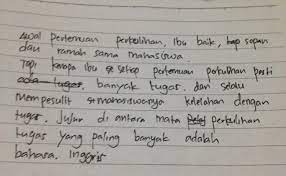 Awal pertemuan perkuliahan, Ibu baik, sopan
dan ramah sama mahasiswa.
Tapi kenapa Ibu setiap pertemuan perkuliahan pasti
banyak tugas. dan selalu
mempersulit mahasiswanya kelelahan dengan
tugas. Jujur di antara mata perkuliahan
tugas yang paling banyak adalah
bahasa. Inggris